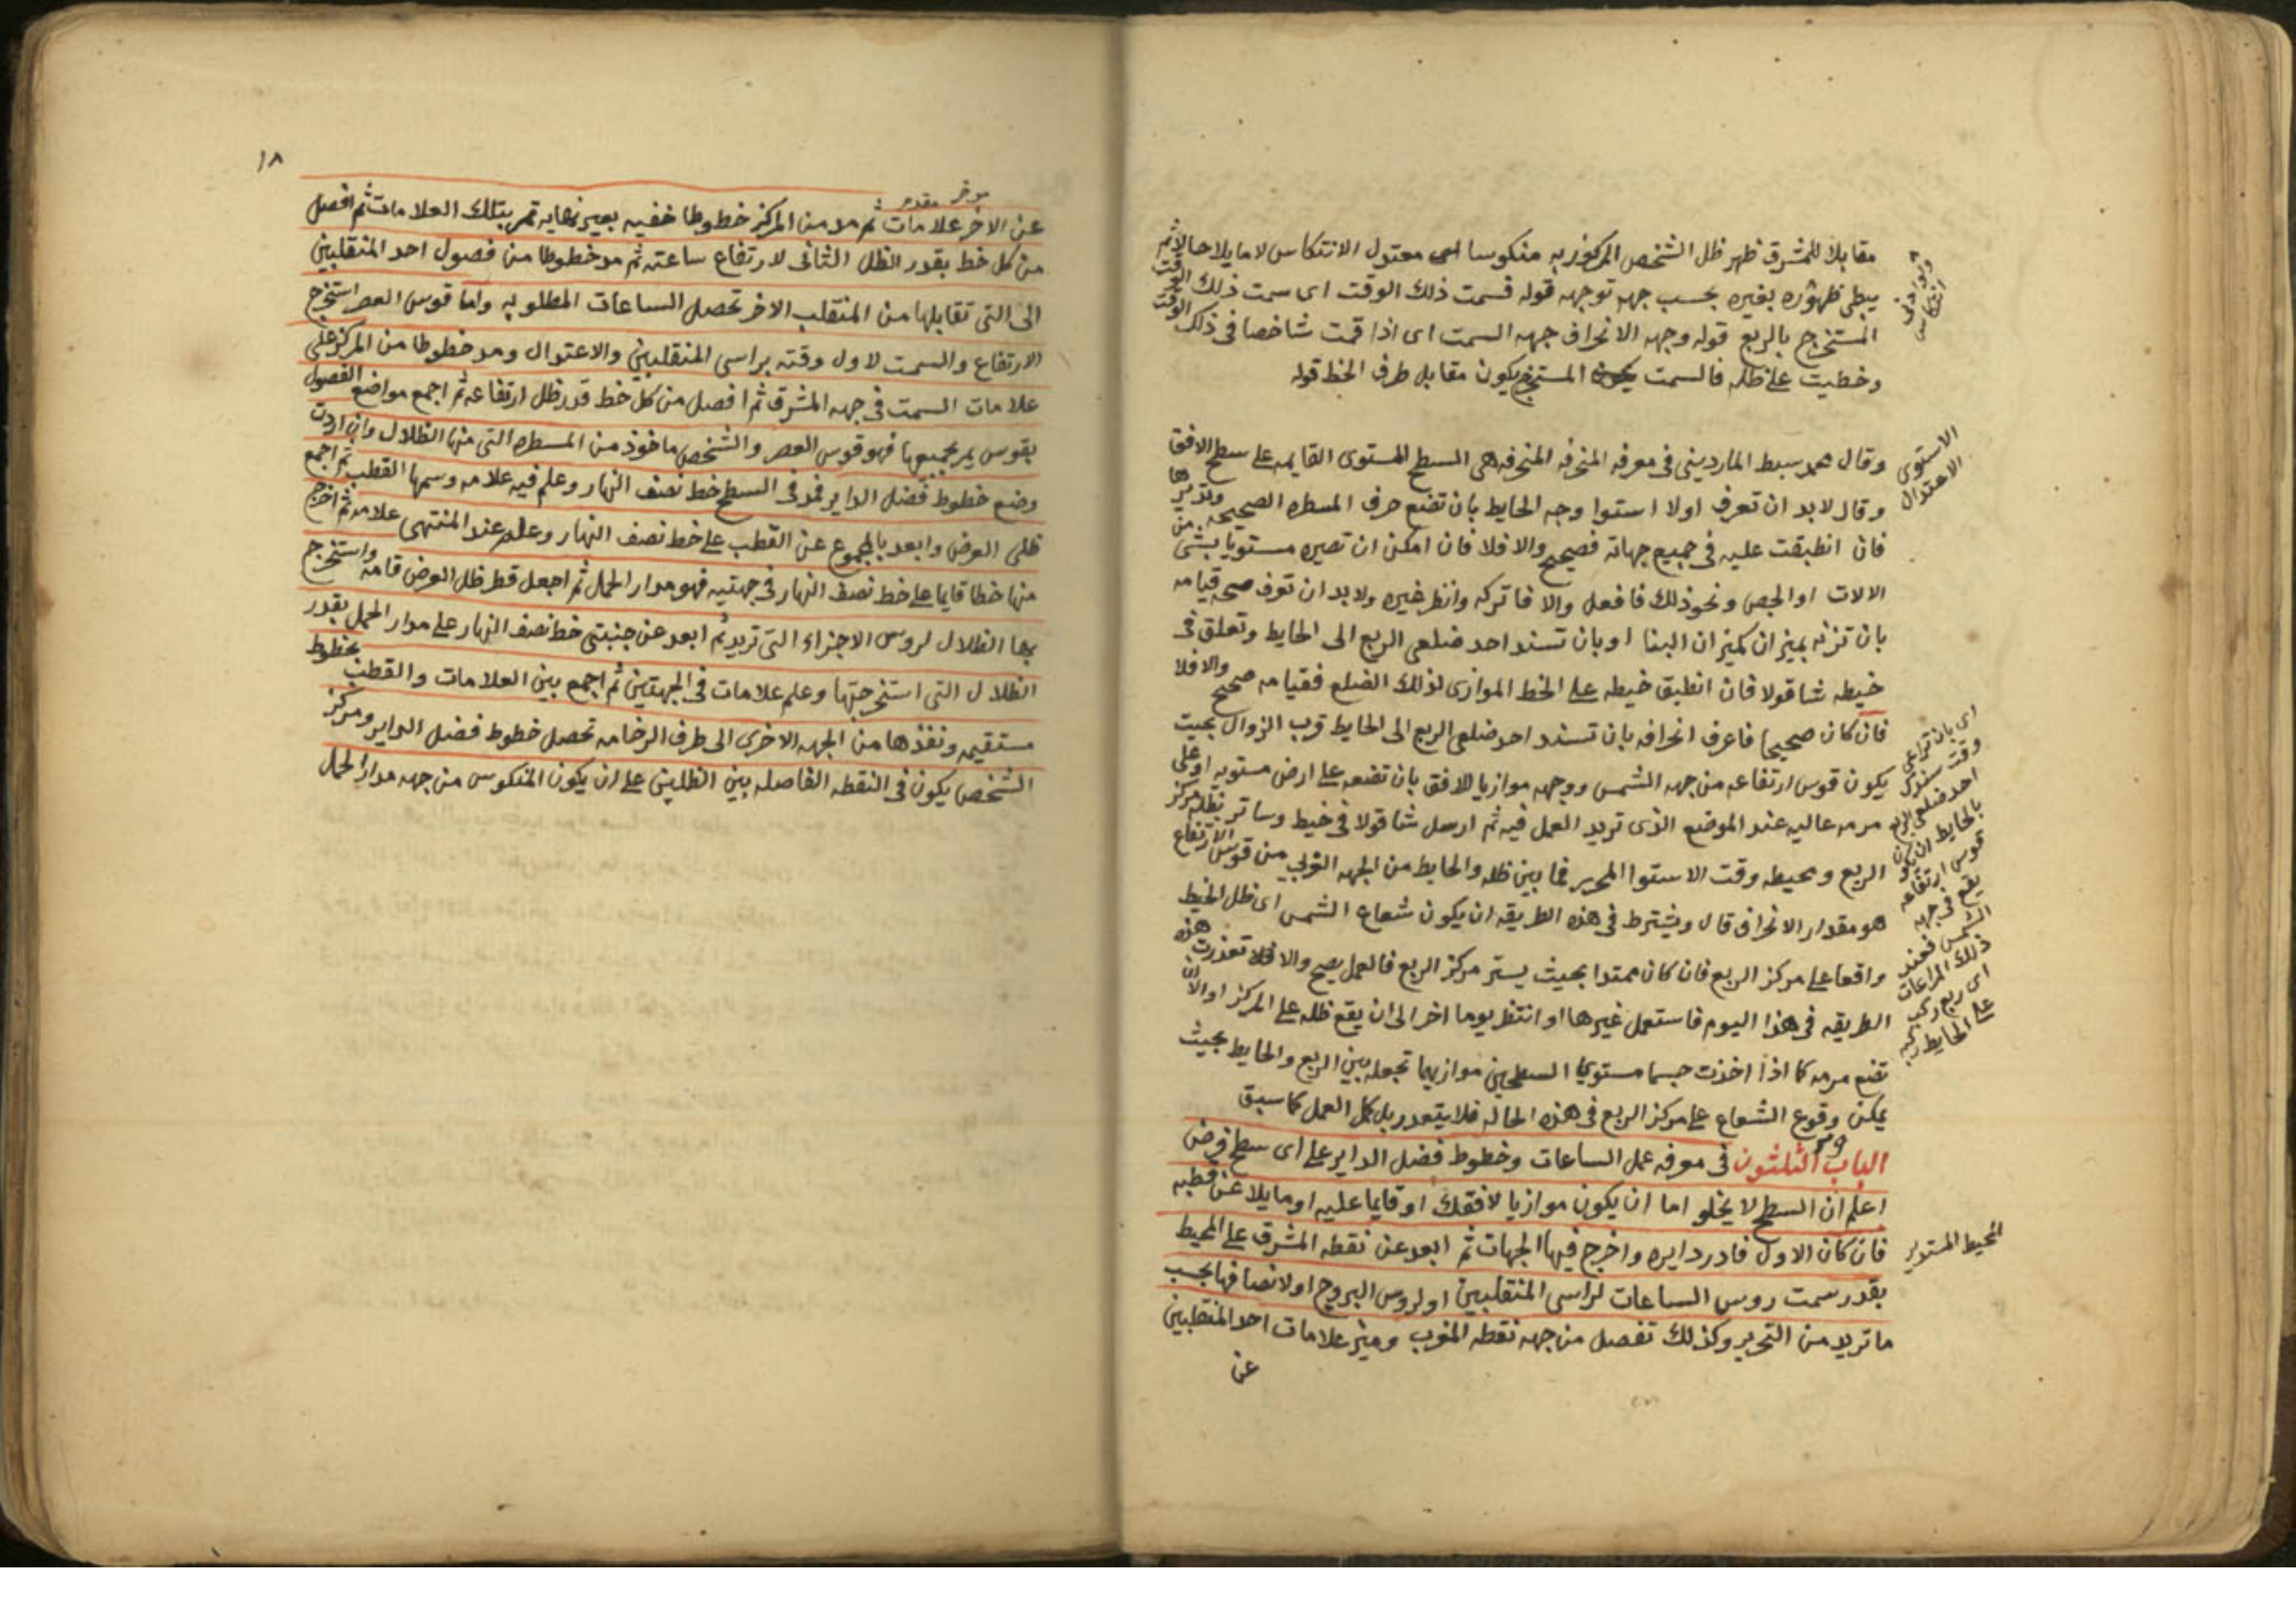 مقابلا للمشرق ظهر ظل الشخص المركوز به منكوسا اى معتدل الانتكاس لا مايلا حالا ثم
يبطى ظهوره بغيره بحسب جهه توجهه قوله فسمت ذلك الوقت اى سمت ذلك الوقت
المستخرج بالربع قوله وجهه الانحراف جهه السمت اى اذا قمت شاخصا فى ذلك الوقت
وخطيت على ظله فالسمت المستخرج يكون مقابل طرف الخط قوله
وقال محمد سبط الماردينى فى معرفه المنحرفه المنحرفه هى السطح المستوى القايمه على سطح الافق
الاستوى
الاعتدال
وقال لابد ان تعرف اولا استوا وجه الحايط بان تضع حرف المسطره الصحيحه وتديرها
فان انطبقت عليه فى جميع جهاته فصحيح والا فلا فان امكن ان تصيره مستويا بشى من
الالات او الجص ونحو ذلك فافعل والا فاتركه وانظر غيره ولابد ان تعرف صحه قيامه
بان تزنه بميزان كميزان البنا او بان تسند احد ضلعى الربع الى الحايط وتعلق فى
خيطه شاقولا فان انطبق خيطه على الخط الموازى لذلك الضلع فقيامه صحيح والا فلا
فان كان صحيحا فاعرف انحرافه بان تسند احد ضلعى الربع الى الحايط قرب الزوال بحيث
يكون قوس ارتفاعه من جهه الشمس ووجهه موازيا للافق بان تضعه على ارض مستويه او على
مرمه عاليه عند الموضع الذى تريد العمل فيه ثم ارسل شاقولا فى خيط وساتر بظله مركز
الربع ومحيطه وقت الاستوا المحرر فما بين ظله والحايط من الجهه القربى من قوس الارتفاع
هو مقدار الانحراف قال ويشترط فى هذه الطريقه ان يكون شعاع الشمس اى ظل الخيط
واقعا على مركز الربع فان كان ممتدا بحيث يستر مركز الربع فالعمل يصح والا فلا تعذرت هذه
الطريقه فى هذا اليوم فاستعمل غيرها او انتظر يوما اخر الى ان يقع ظله على المركز او الا ان
تضع مرمه كما اذا اخذت جسما مستوى السطحين موازيهما تجعله بين الربع والحايط بحيث
يمكن وقوع الشعاع على مركز الربع فى هذه الحاله فلا يتعذر بل كمل العمل كما سبق
اى بان تراعى
وقت سندك
احد ضلعى الربع
بالحايط ان يكون
قوس ارتفاعه
يقع فى جهه
الشمس فعند
ذلك المراعات
اى ربع ركب
على الحايط ركبه
الباب الثلثون فى معرفه عمل الساعات وخطوط فضل الداير على اى سطح فرض
اعلم ان السطح لا يخلو اما ان يكون موازيا لافقك او قايما عليه او مايلا عن قطبه
فان كان الاول فادر دايره واخرج فيها الجهات ثم ابعد عن نقطه المشرق على المحيط
المحيط المستدير
بقدر سمت روس الساعات لراسى المنقلبين او لروس البروج او لانصافها بحسب
ما تريد من التحرير وكذلك تفصل من جهه نقطه المغرب وميز علامات احد المنقلبين
عن
١٨
عن الاخر علامات ثم مد من المركز خطوطا خفيه بغير نهايه تمر بتلك العلامات ثم افصل
من كل خط بقدر الظل الثانى لارتفاع ساعته ثم مد خطوطا من فصول احد المنقلبين
الى التى تقابلها من المنقلب الاخر تحصل الساعات المطلوبه واما قوس العصر استخرج
الارتفاع والسمت لاول وقته براسى المنقلبين والاعتدال ومد خطوطا من المركز على
علامات السمت فى جهه المشرق ثم افصل من كل خط قدر ظل ارتفاعه ثم اجمع مواضع الفصول
بقوس يمر بجميعها فهو قوس العصر والشخص ماخوذ من المسطره التى منها الظلال وان اردت
وضع خطوط فضل الداير فمد فى السطح خط نصف النهار وعلم فيه علامه وسمها القطب ثم اجمع
ظلى العرض وابعد بالمجموع عن القطب على خط نصف النهار وعلم عند المنتهى علامه ثم اخرج
منها خطا قايما على خط نصف النهار فى جهتيه فهو مدار الحمل ثم اجعل قطر ظل العرض قامه واستخرج
بها الظلال لروس الاجزاء التى تريد ثم ابعد عن جنبتى خط نصف النهار على مدار الحمل بقدر
الظلال التى استخرجتها وعلم علامات فى الجهتين ثم اجمع بين العلامات والقطب بخطوط
مستقيمه ونفذها من الجهه الاخرى الى طرف الرخامه تحصل خطوط فضل الداير ومركز
الشخص يكون فى النقطه الفاصله بين الظلين على ان يكون المنكوس من جهه مدار الحمل